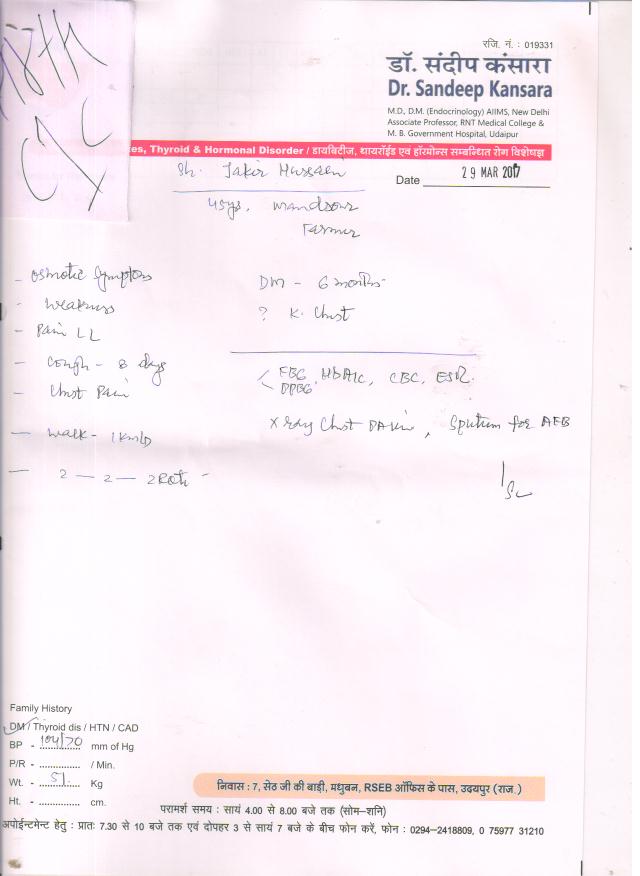 18th
रजि. नं. : 019331
डॉ. संदीप कंसारा
Dr. Sandeep Kansara
M.D., D.M. (Endocrinology) AIIMS, New Delhi
Associate Professor, RNT Medical College &
M. B. Government Hospital, Udaipur
es, Thyroid & Hormonal Disorder / डायबिटीज, थायरॉईड एवं हॉरमोन्स सम्बन्धित रोग विशेषज्ञ
Sh. Jakir Hussaen
Date 29 MAR 2017
45ys, mandsour
Farmer
- Osmotic Symptoms
DM - 6 months
- Weakness
? K. Chest
- Pain LL
- Cough - 8 days
FBG, HbA1c, CBC, ESR.
PPBG
- Chest Pain
X ray Chest PA view, Sputum for AFB
- Walk - 1km/D
- 2 - 2 - 2 Roti -
Family History
DM / Thyroid dis / HTN / CAD
BP - 104/70 mm of Hg
P/R - .............. / Min.
Wt. - 51. Kg
Ht. - .............. cm.
निवास : 7, सेठ जी की बाड़ी, मधुबन, RSEB ऑफिस के पास, उदयपुर (राज.)
परामर्श समय : सायं 4.00 से 8.00 बजे तक (सोम-शनि)
अपोईन्टमेन्ट हेतु : प्रातः 7.30 से 10 बजे तक एवं दोपहर 3 से सायं 7 बजे के बीच फोन करें, फोन : 0294-2418809, 0 75977 31210